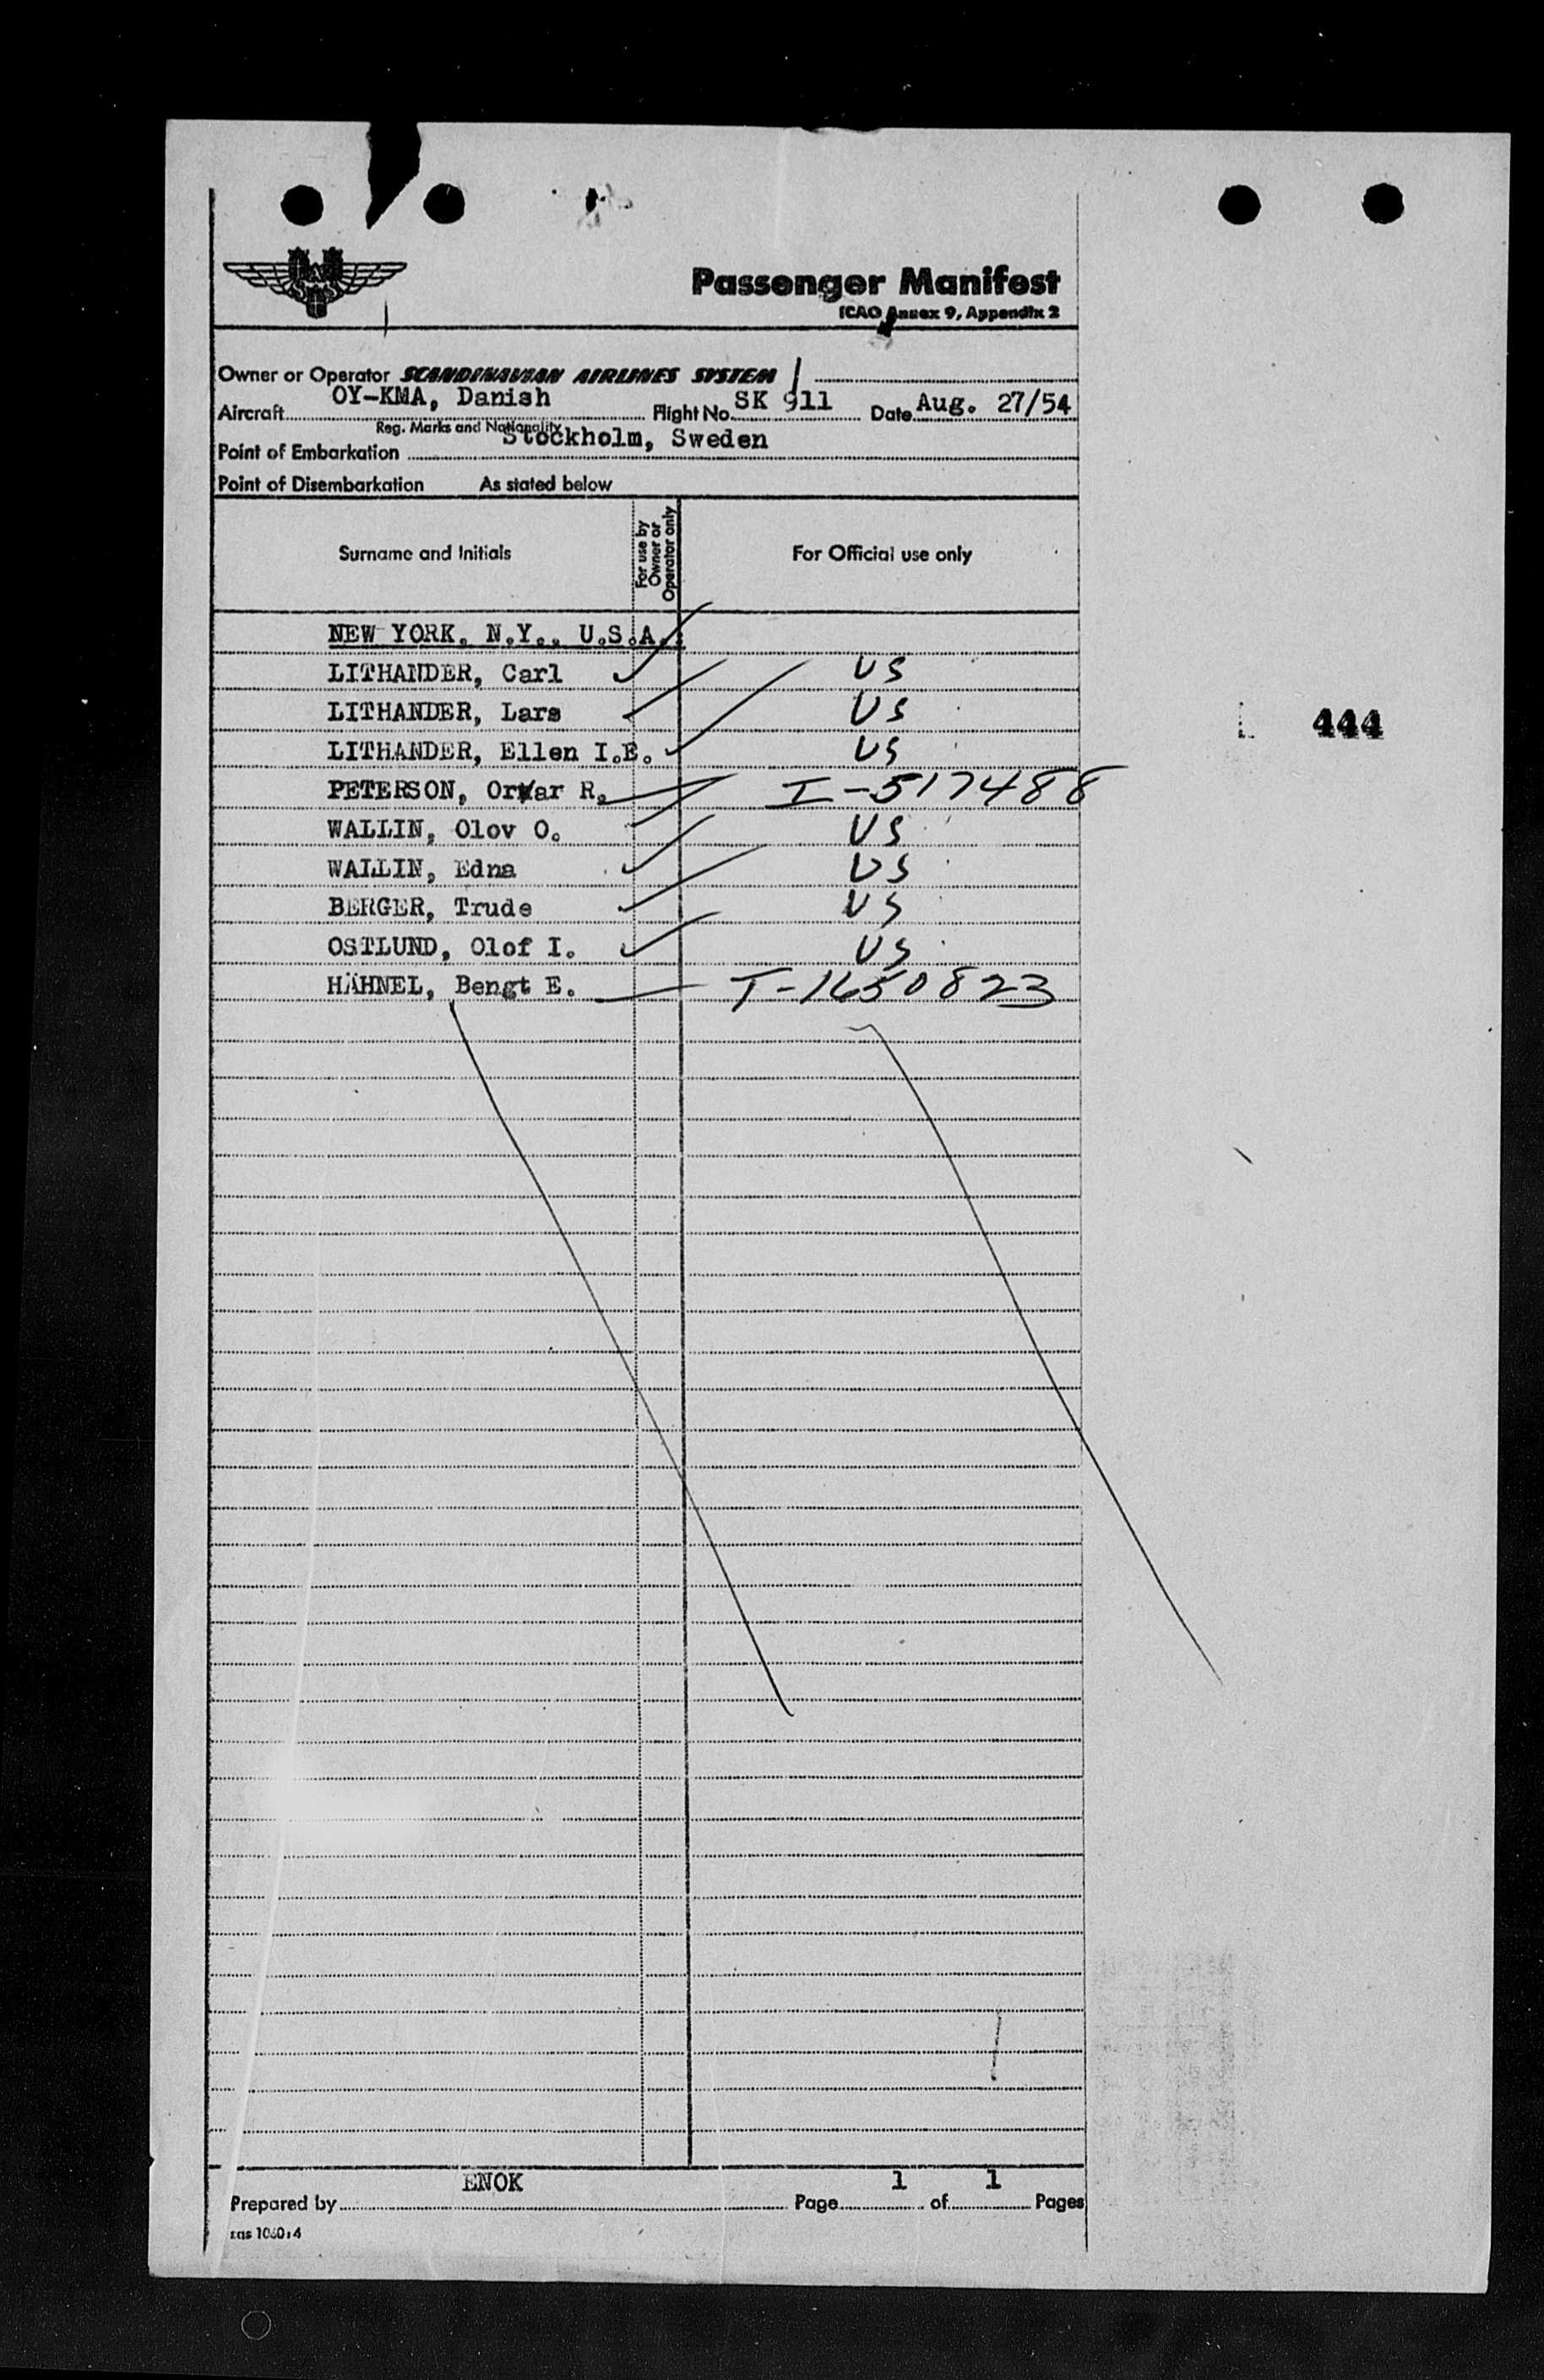 Passenger Manifest
ICAO Annex 9, Appendix 2
Owner or Operator SCANDINAVIAN AIRLINES SYSTEM
Aircraft OY-KMA, Danish Flight No. SK 911 Date Aug. 27/54
Reg. Marks and Nationality
Point of Embarkation Stockholm, Sweden
Point of Disembarkation As stated below
Surname and Initials For use by Owner or Operator only For Official use only
NEW YORK, N.Y., U.S.A.
LITHANDER, Carl US
LITHANDER, Lars US
444
LITHANDER, Ellen I.E. US
PETERSON, Orvar R. I-517488
WALLIN, Olov O. US
WALLIN, Edna US
BERGER, Trude US
OSTLUND, Olof I. US
HÄHNEL, Bengt E. T-1650823
Prepared by ENOK Page 1 of 1 Pages